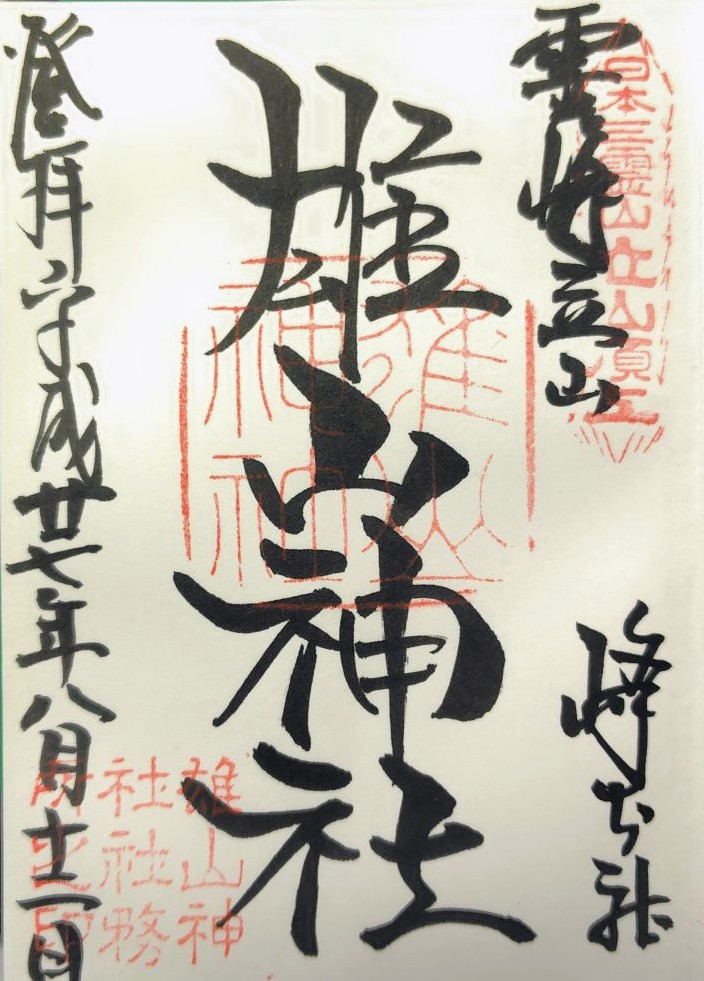 霊峰立山
日本三霊山立山頂上
峰本社
雄山神社
雄山神社
雄山神
社社務
所之印
登拝平成廿七年八月十二日